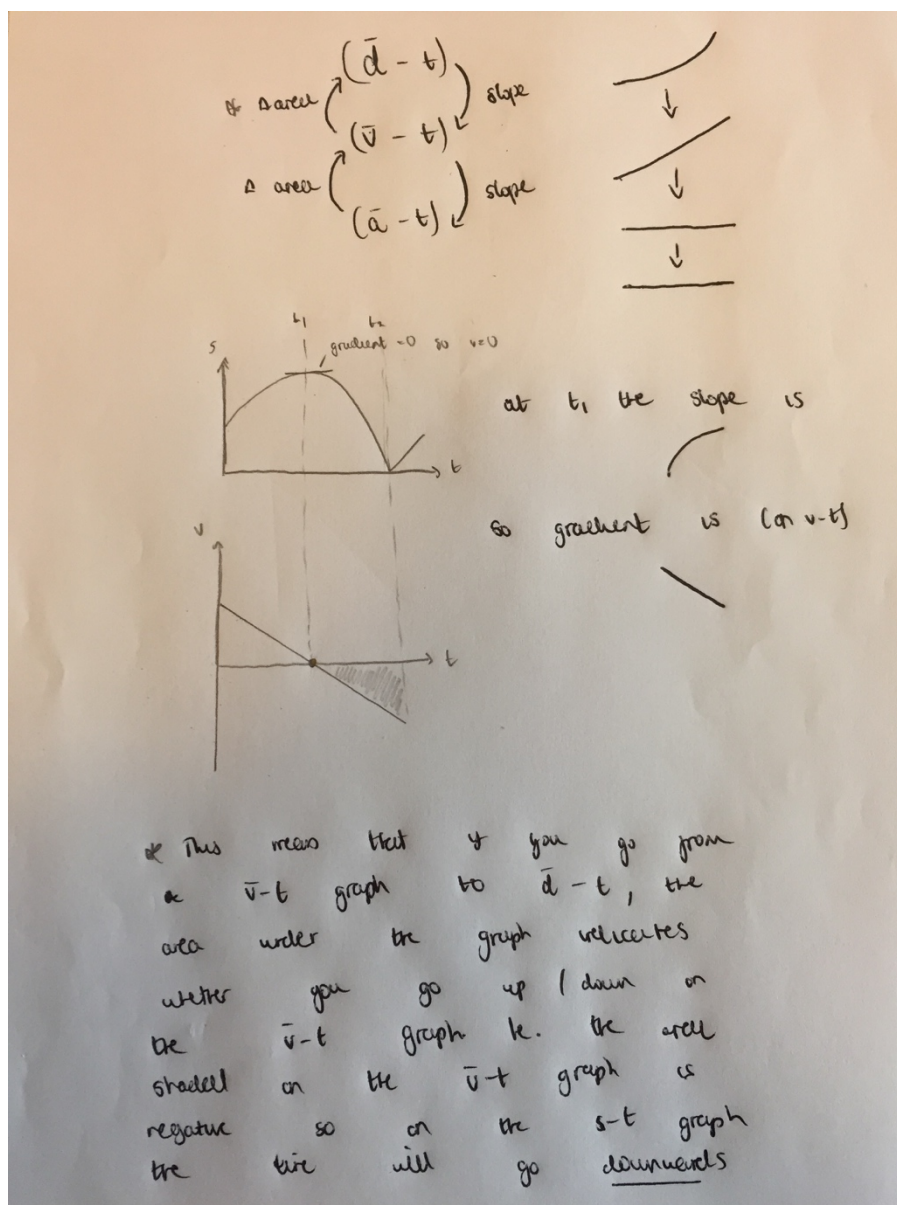 (d̄ - t)
* Δ area
slope
(v̄ - t)
Δ area
slope
(ā - t)
t₁ t₂
gradient = 0 so v=0
s
t
at t₁ the slope is
so gradient is (on v-t)
v
t
* This means that if you go from
a v̄-t graph to d̄ - t, the
area under the graph indicates
whether you go up / down on
the v̄-t graph ie. the area
shaded on the v̄-t graph is
negative so on the s-t graph
the line will go downwards